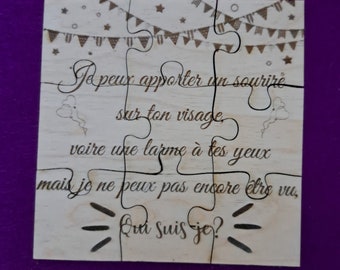 Je peux apporter un sourire
sur ton visage,
voire une larme à tes yeux
mais je ne peux pas encore être vu,
Qui suis-je?